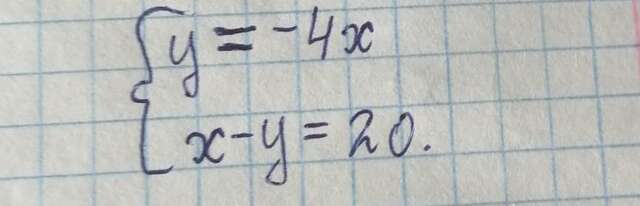 y = -4x
x - y = 20.